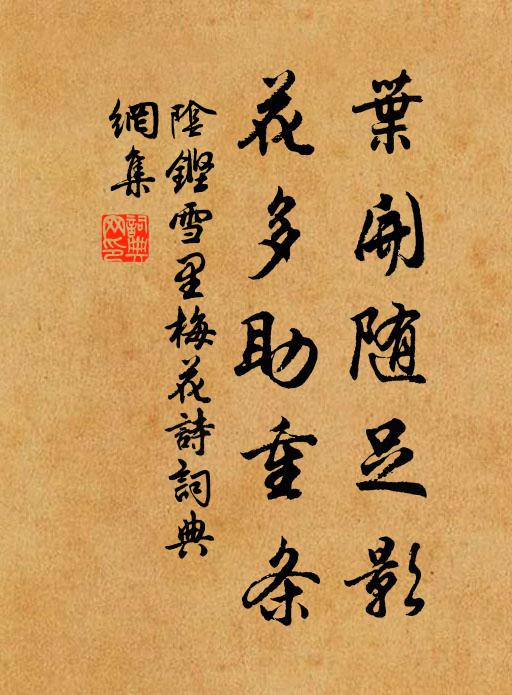 葉開随足影
花多助重条
陰鏗雪里梅花詩詞典
網集
詞典网印